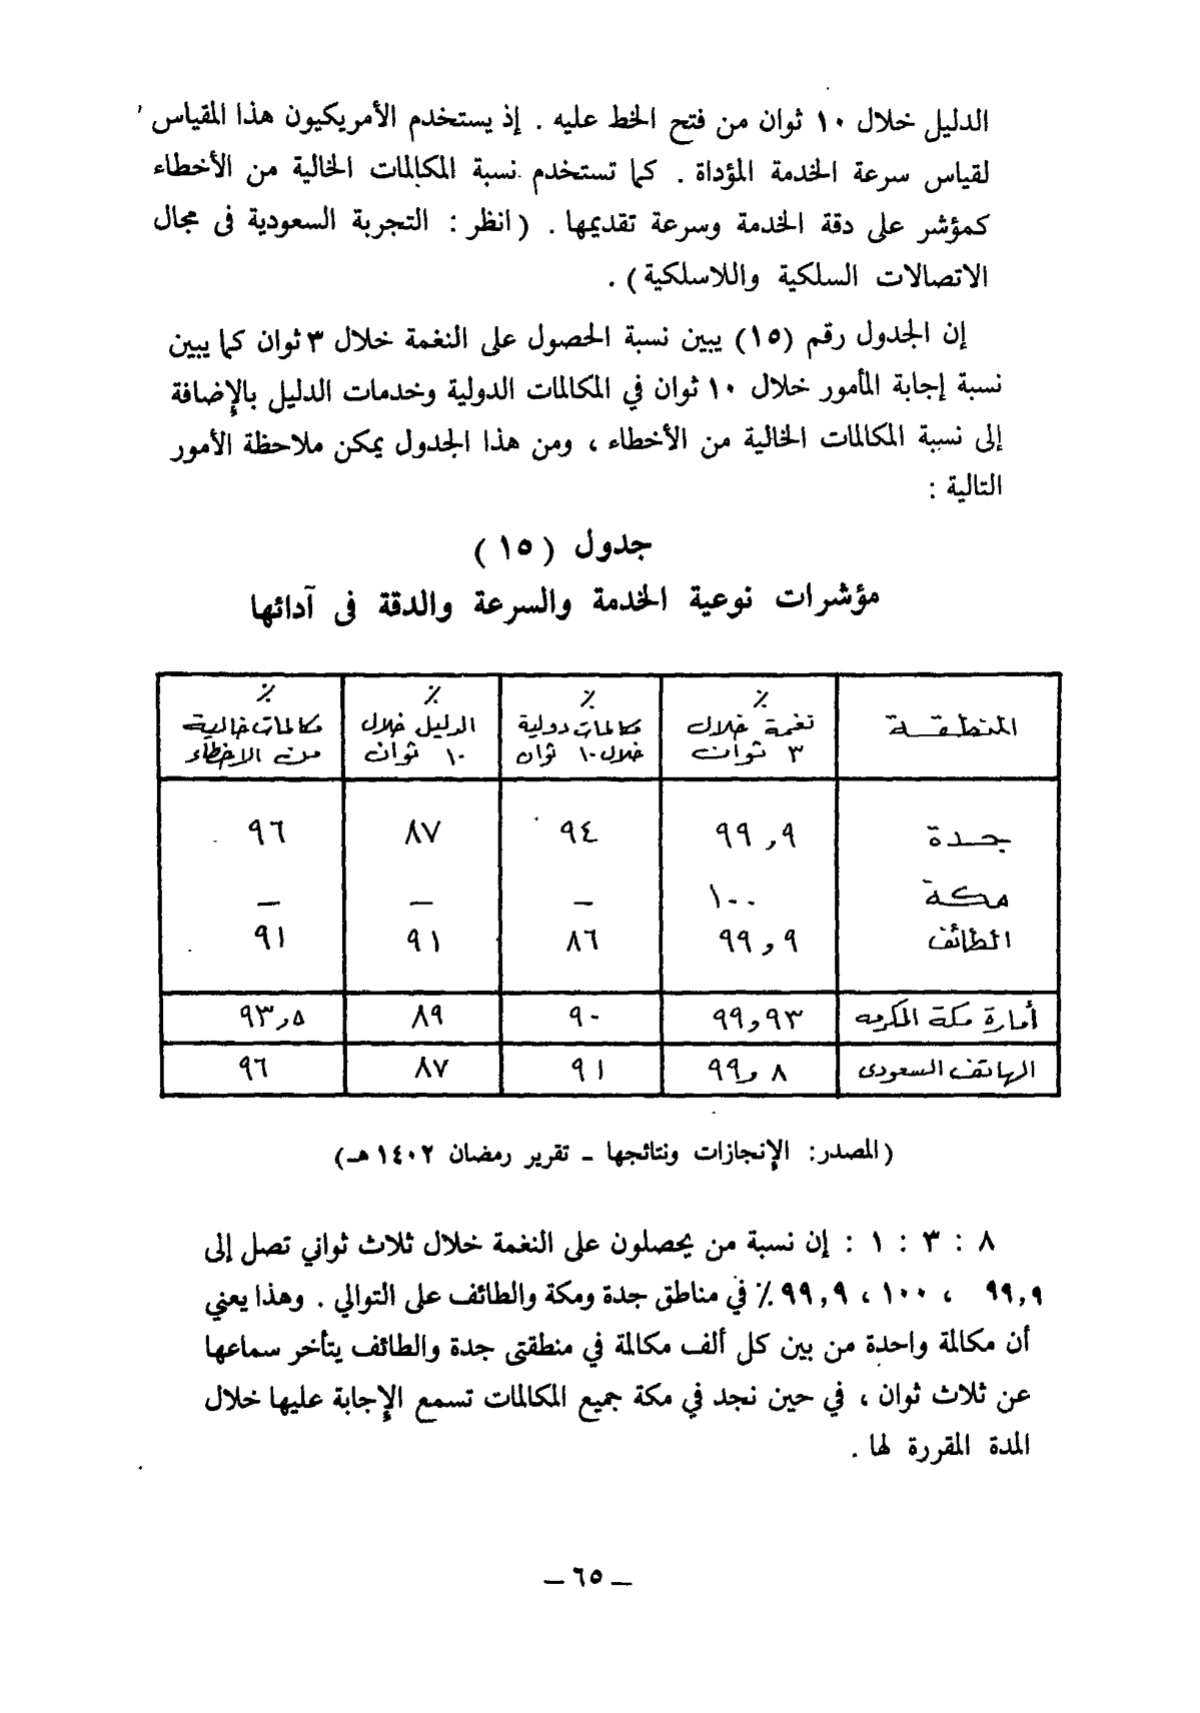 الدليل خلال ١٠ ثوان من فتح الخط عليه . إذ يستخدم الأمريكيون هذا المقياس
لقياس سرعة الخدمة المؤداة . كما تستخدم نسبة المكالمات الخالية من الأخطاء
كمؤشر على دقة الخدمة وسرعة تقديمها . ( انظر : التجربة السعودية فى مجال
الاتصالات السلكية واللاسلكية ) .
إن الجدول رقم (١٥) يبين نسبة الحصول على النغمة خلال ٣ ثوان كما يبين
نسبة إجابة المأمور خلال ١٠ ثوان في المكالمات الدولية وخدمات الدليل بالإضافة
إلى نسبة المكالمات الخالية من الأخطاء ، ومن هذا الجدول يمكن ملاحظة الأمور
التالية :
جدول ( ١٥ )
مؤشرات نوعية الخدمة والسرعة والدقة فى آدائها
٪ ٪ ٪ ٪
المنطقة نغمة خلال مكالمات دولية الدليل خلال مكالمات خالية
٣ ثوان خلال ١٠ ثوان ١٠ ثوان من الاخطاء
جدة ٩٩,٩ ٩٤ ٨٧ ٩٦
مكة ١٠٠ – – –
الطائف ٩٩,٩ ٨٦ ٩١ ٩١
أمارة مكة المكرمه ٩٩,٩٣ ٩٠ ٨٩ ٩٣,٥
الهاتف السعودى ٩٩,٨ ٩١ ٨٧ ٩٦
(المصدر: الإنجازات ونتائجها - تقرير رمضان ١٤٠٢ هـ)
٨ : ٣ : ١ : إن نسبة من يحصلون على النغمة خلال ثلاث ثواني تصل إلى
٩٩,٩ ، ١٠٠ ، ٩٩,٩ ٪ في مناطق جدة ومكة والطائف على التوالي . وهذا يعني
أن مكالمة واحدة من بين كل ألف مكالمة في منطقتى جدة والطائف يتأخر سماعها
عن ثلاث ثوان ، في حين نجد في مكة جميع المكالمات تسمع الإجابة عليها خلال
المدة المقررة لها .
– ٦٥ –